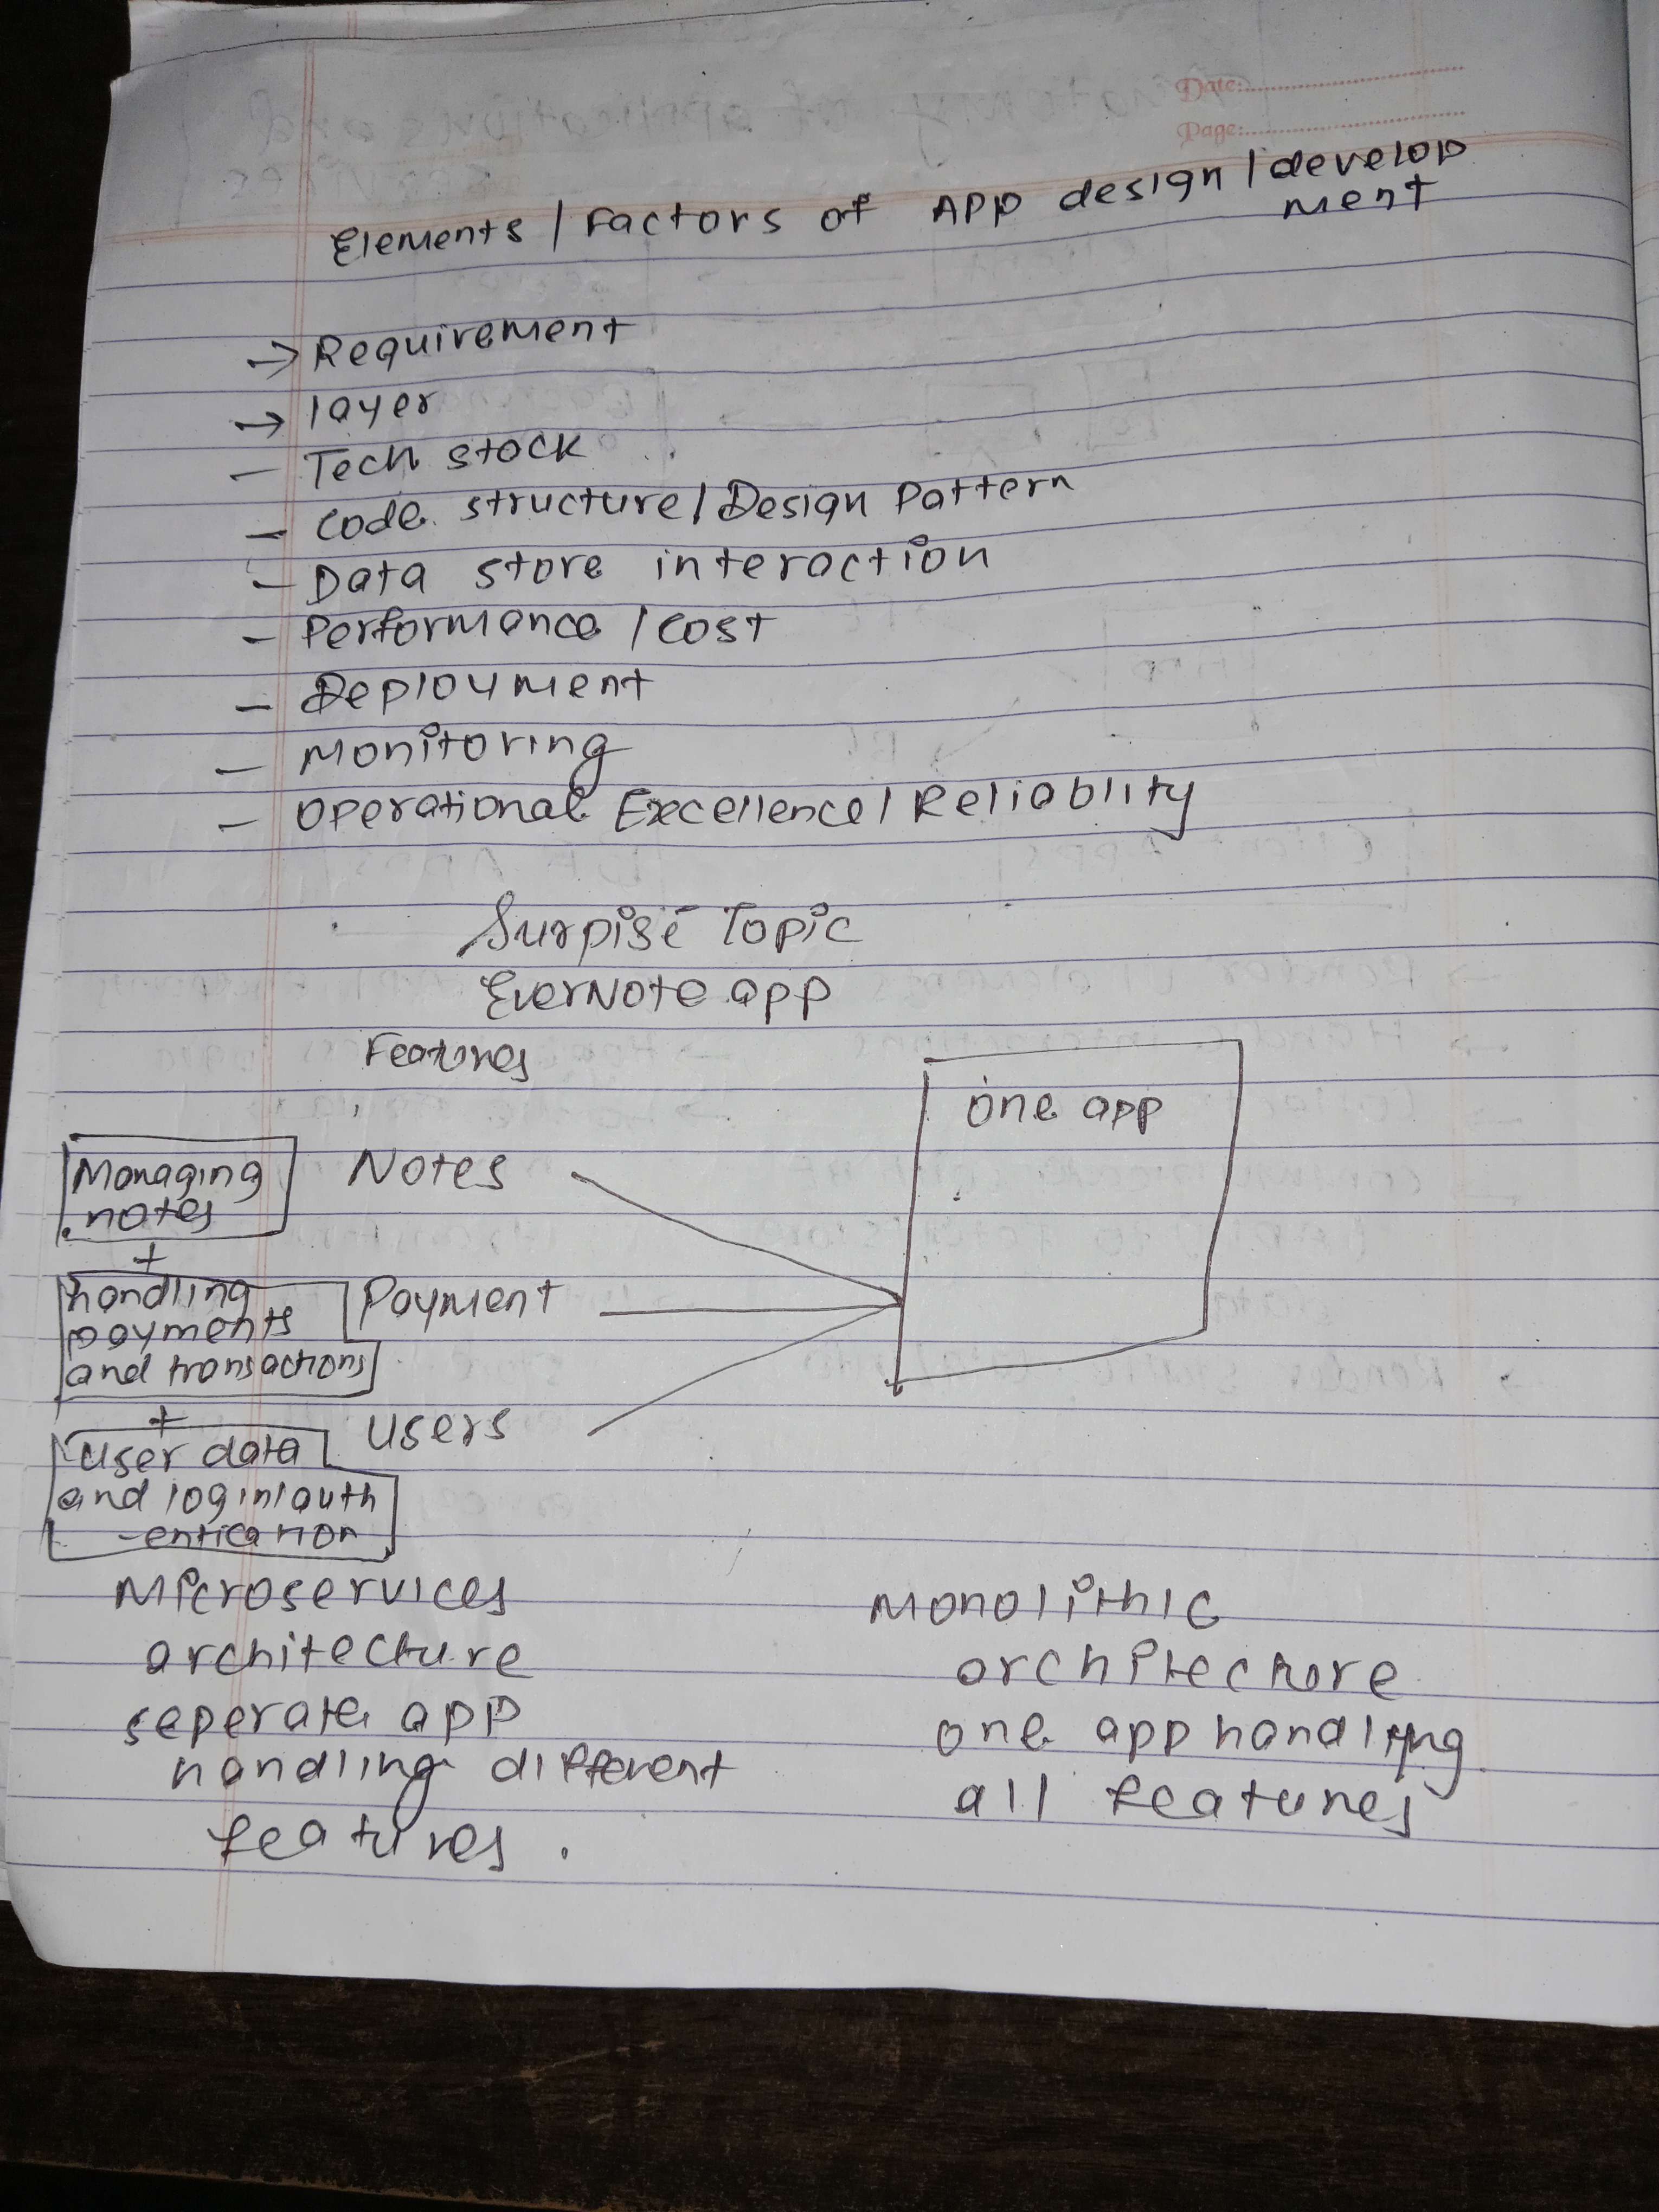 Date:
Page:
Elements / Factors of APP design / develop
ment
→ Requirement
→ layer
- Tech stack
- Code structure / Design Pattern
- Data store interaction
- Performance / cost
- Deployment
- Monitoring
- Operational Excellence / Reliablity
Surpise Topic
EverNote app
Features
one app
Managing
notes
Notes
+
handling
payments
and transactions
Payment
+
User data
and login/auth
-entication
Users
Microservices
architecture
seperate app
handling different
features.
Monolithic
architecture
one app handling
all features